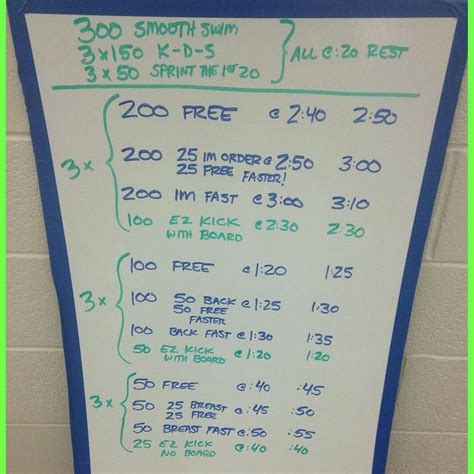 300 SMOOTH SWIM
3x150 K-D-S
3 x 50 SPRINT THE 1ST 20
ALL @ :20 REST
3x
200 FREE @ 2:40 2:50
200 25 IM ORDER @ 2:50 3:00
25 FREE FASTER!
200 IM FAST @ 3:00 3:10
100 EZ KICK @ 2:30 2:30
WITH BOARD
3x
100 FREE @ 1:20 1:25
100 50 BACK @ 1:25 1:30
50 FREE
FASTER
100 BACK FAST @ 1:30 1:35
50 EZ KICK @ 1:20 1:20
WITH BOARD
3x
50 FREE @ :40 :45
50 25 BREAST @ :45 :50
25 FREE
50 BREAST FAST @ :50 :55
25 EZ KICK :40 :40
NO BOARD